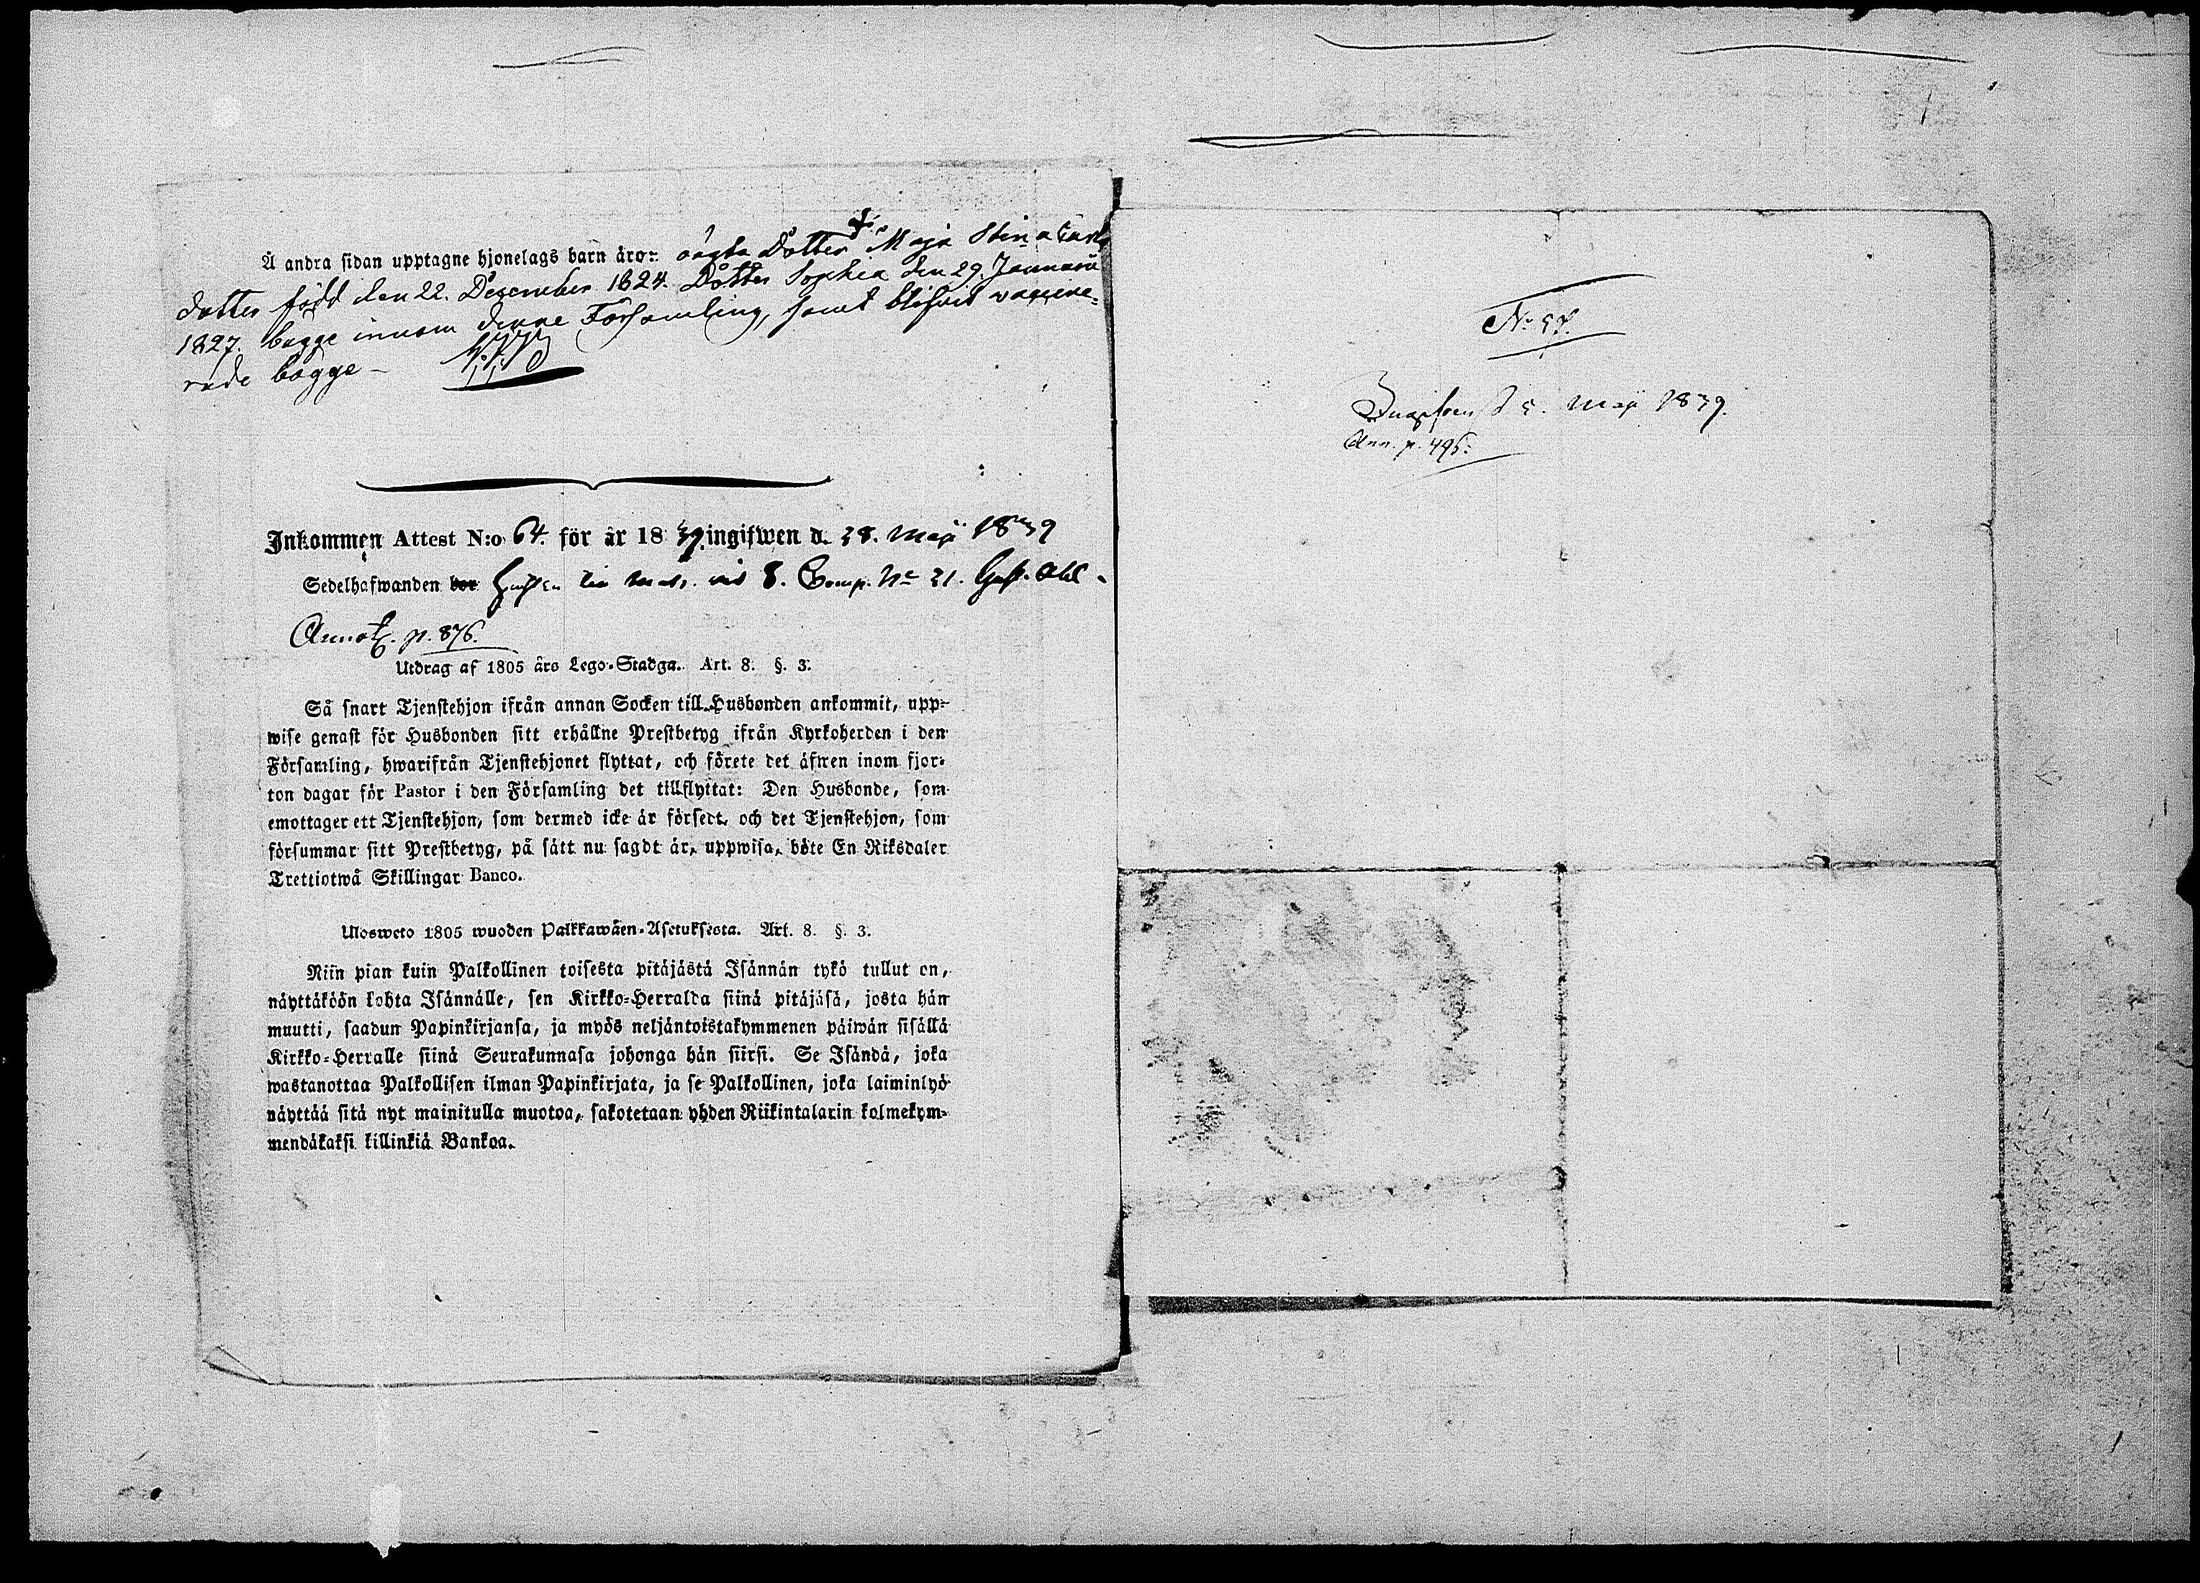 Å andra sidan upptagne hjonelags barn äro: oägta Dotter Maja Stina Carls
dotter född den 22. December 1824. Dotter Sophia den 29. Januarii
1827. bägge innom denne Församling, samt blifvit vaccine-
rade bägge –
Inkommen Attest N:o 64. för år 1839. ingifwen d. 28. Maji 1839
Sedelhafwanden bor vid 8. Comp. No 31. Gust. Ahl-
Annot. p. 876.
Utdrag af 1805 års Lego-Stadga. Art. 8. §. 3.
Så snart Tjenstehjon ifrån annan Socken till Husbonden ankommit, upp-
wise genast för Husbonden sitt erhållne Prestbetyg ifrån Kyrkoherden i den
Församling, hwarifrån Tjenstehjonet flyttat, och förete det äfwen inom fjor-
ton dagar för Pastor i den Församling det tillflyttat: Den Husbonde, som
emottager ett Tjenstehjon, som dermed icke är försedt, och det Tjenstehjon, som
försummar sitt Prestbetyg, på sätt nu sagdt är, uppwisa, böte En Riksdaler
Trettiotwå Skillingar Banco.
Ulosweto 1805 wuoden Palkkawäen-Asetuksesta. Art. 8. §. 3.
Niin pian kuin Palkollinen toisesta pitäjästä Isännän tykö tullut on,
näyttäköön kohta Isännälle, sen Kirkko-Herralda siinä pitäjäsä, josta hän
muutti, saadun Papinkirjansa, ja myös neljäntoistakymmenen päiwän sisällä
Kirkko-Herralle siinä Seurakunnasa johonga hän siirsi. Se Isändä, joka
wastanottaa Palkollisen ilman Papinkirjata, ja se Palkollinen, joka laiminlyö
näyttää sitä nyt mainitulla muotoa, sakotetaan yhden Riikintalarin kolmekym-
mendäkaksi killinkiä Bankoa.
No 57.
Ingifven d 5. Maji 1839.
Ann. p. 495.